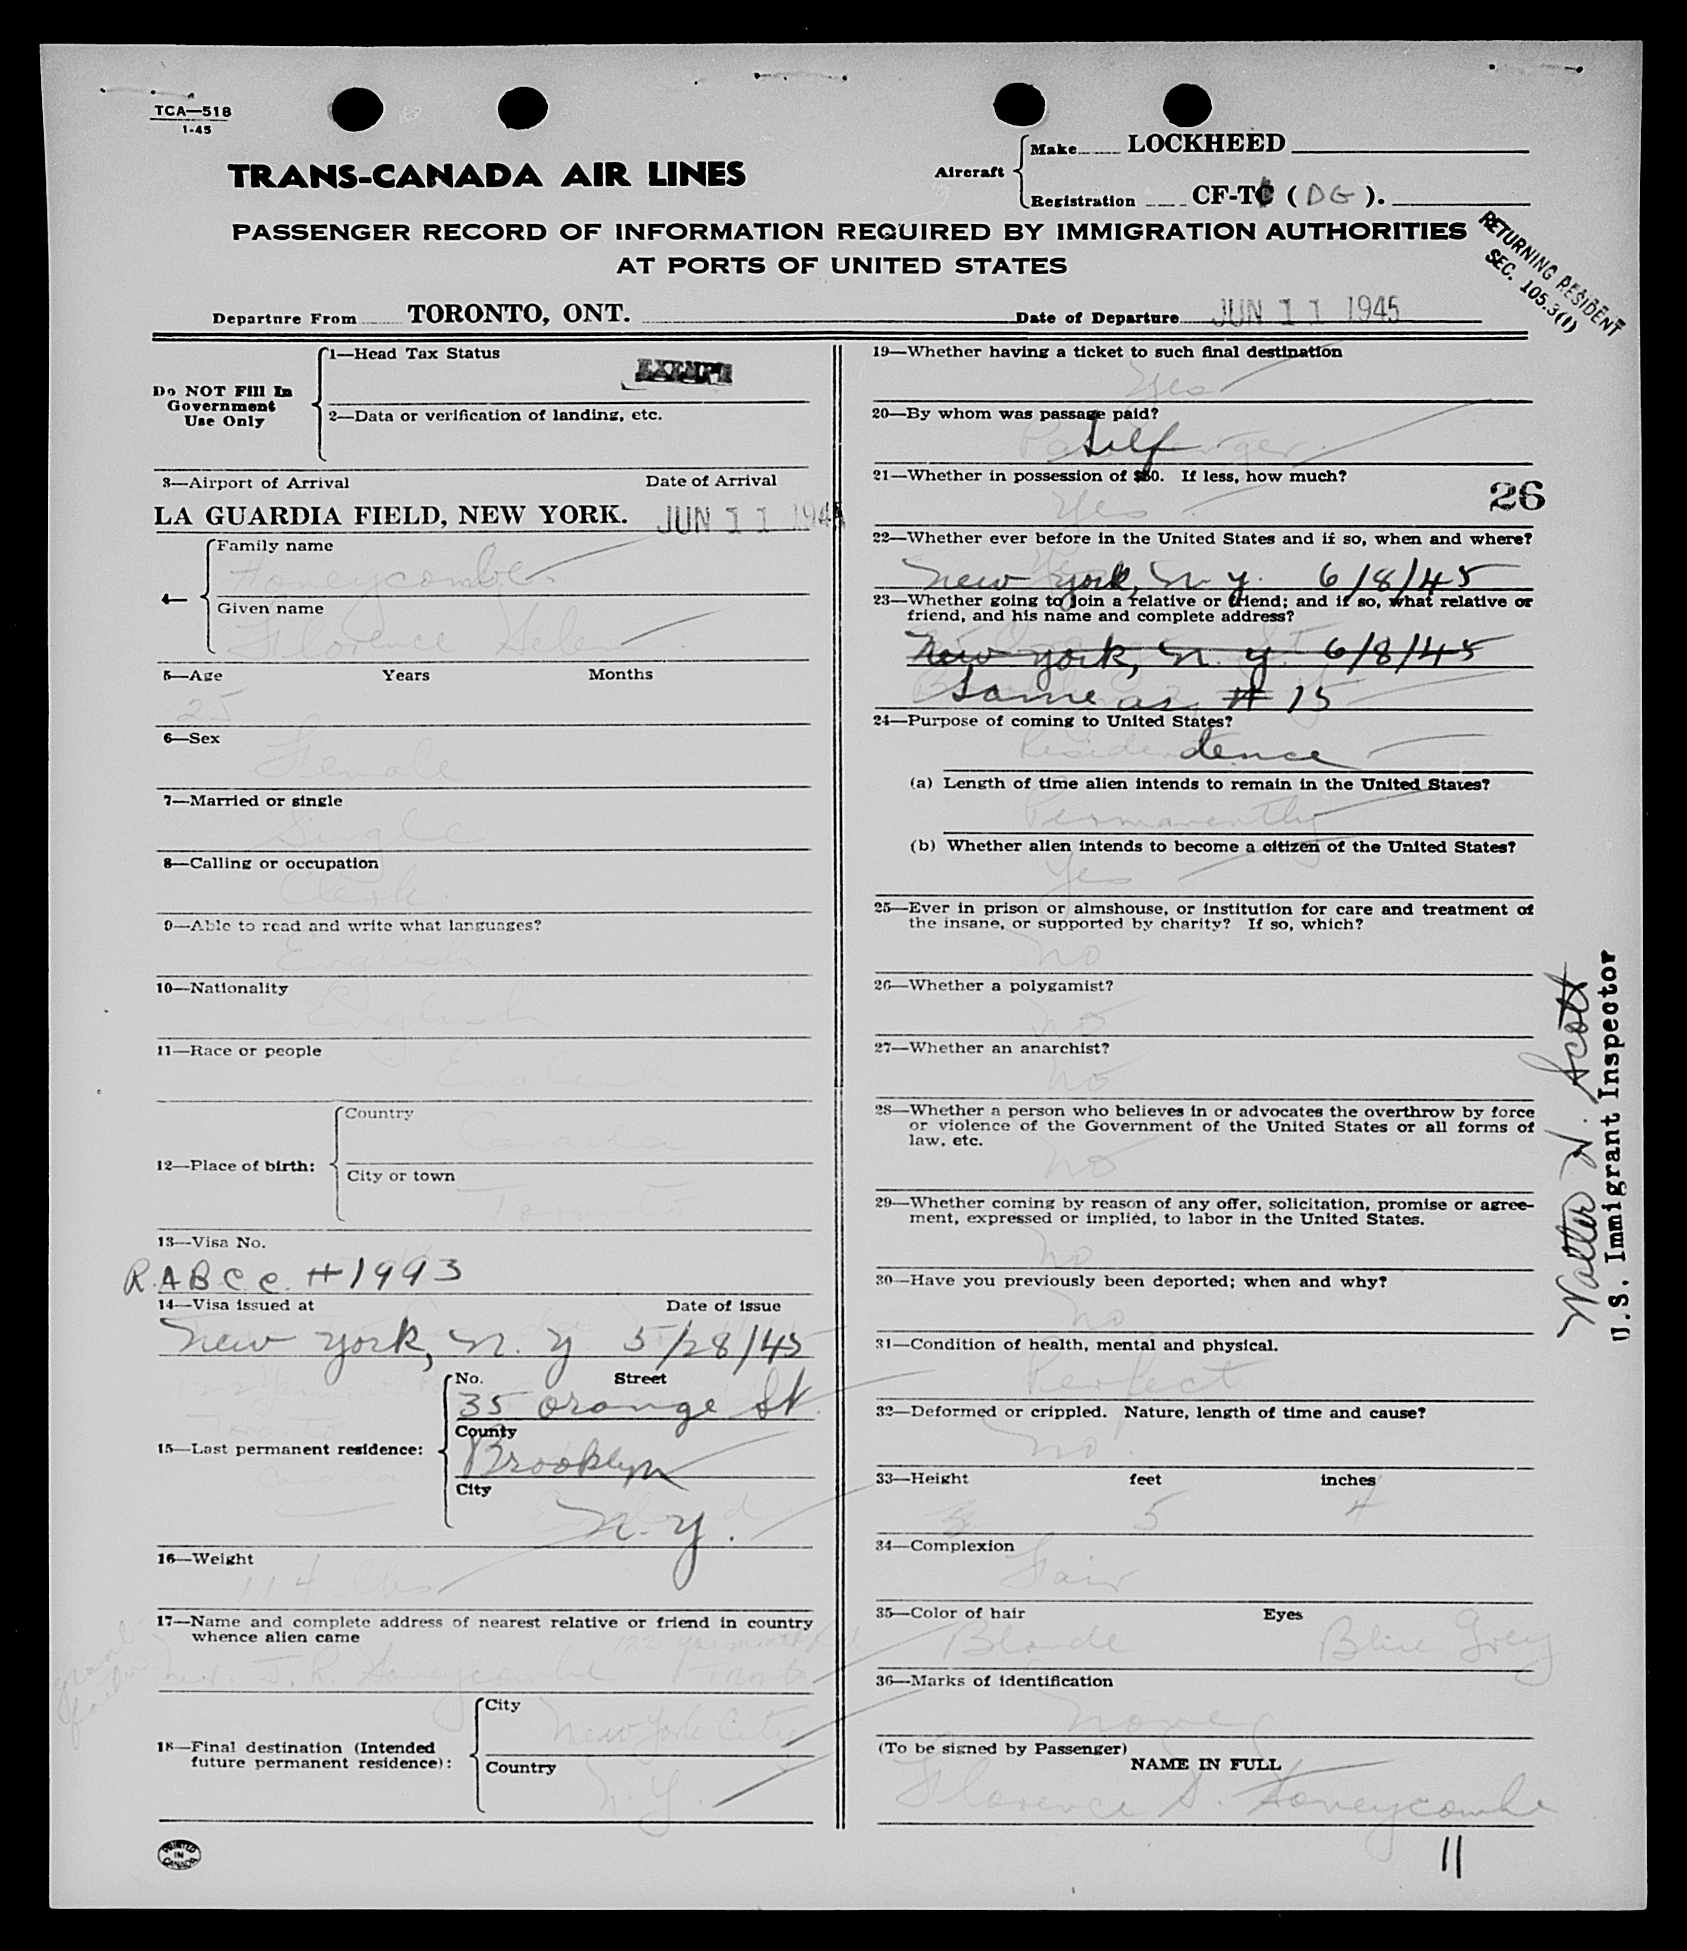 TCA—518
1-45
TRANS-CANADA AIR LINES
Aircraft
Make LOCKHEED
Registration CF-TC (DG).
PASSENGER RECORD OF INFORMATION REQUIRED BY IMMIGRATION AUTHORITIES
AT PORTS OF UNITED STATES
RETURNING RESIDENT
SEC. 105.3(1)
Departure From TORONTO, ONT.
Date of Departure JUN 11 1945
Do NOT Fill In
Government
Use Only
1—Head Tax Status
EXEMPT
2—Data or verification of landing, etc.
3—Airport of Arrival Date of Arrival
LA GUARDIA FIELD, NEW YORK. JUN 11 1945
4—
Family name
Honeycombe
Given name
Florence Helen
5—Age Years Months
25
6—Sex
Female
7—Married or single
Single
8—Calling or occupation
Clerk
9—Able to read and write what languages?
English
10—Nationality
English
11—Race or people
English
12—Place of birth:
Country
Canada
City or town
Toronto
13—Visa No.
R.A B C C. #1993
14—Visa issued at Date of issue
New York, N. Y 5/28/45
15—Last permanent residence:
No. Street
35 Orange St.
County
Brooklyn
City
N. Y.
16—Weight
114 lbs
17—Name and complete address of nearest relative or friend in country
whence alien came
J. R. Honeycombe
18—Final destination (Intended
future permanent residence):
City
New York City
Country
N. Y.
PRINTED
IN
CANADA
19—Whether having a ticket to such final destination
Yes
20—By whom was passage paid?
Passenger
Self
21—Whether in possession of $50. If less, how much?
Yes
26
22—Whether ever before in the United States and if so, when and where?
New York, N. Y. 6/8/45
23—Whether going to join a relative or friend; and if so, what relative or
friend, and his name and complete address?
New York, N. Y. 6/8/45
Same as # 15
24—Purpose of coming to United States?
Residence
(a) Length of time alien intends to remain in the United States?
Permanently
(b) Whether alien intends to become a citizen of the United States?
Yes
25—Ever in prison or almshouse, or institution for care and treatment of
the insane, or supported by charity? If so, which?
No
26—Whether a polygamist?
No
27—Whether an anarchist?
No
28—Whether a person who believes in or advocates the overthrow by force
or violence of the Government of the United States or all forms of
law, etc.
No
29—Whether coming by reason of any offer, solicitation, promise or agree-
ment, expressed or implied, to labor in the United States.
No
30—Have you previously been deported; when and why?
No
31—Condition of health, mental and physical.
Perfect
32—Deformed or crippled. Nature, length of time and cause?
No.
33—Height feet inches
5 4
34—Complexion
Fair
35—Color of hair Eyes
Blonde Blue Grey
36—Marks of identification
None
(To be signed by Passenger)
NAME IN FULL
Florence H. Honeycombe
11
Walter N. Scott
U.S. Immigrant Inspector